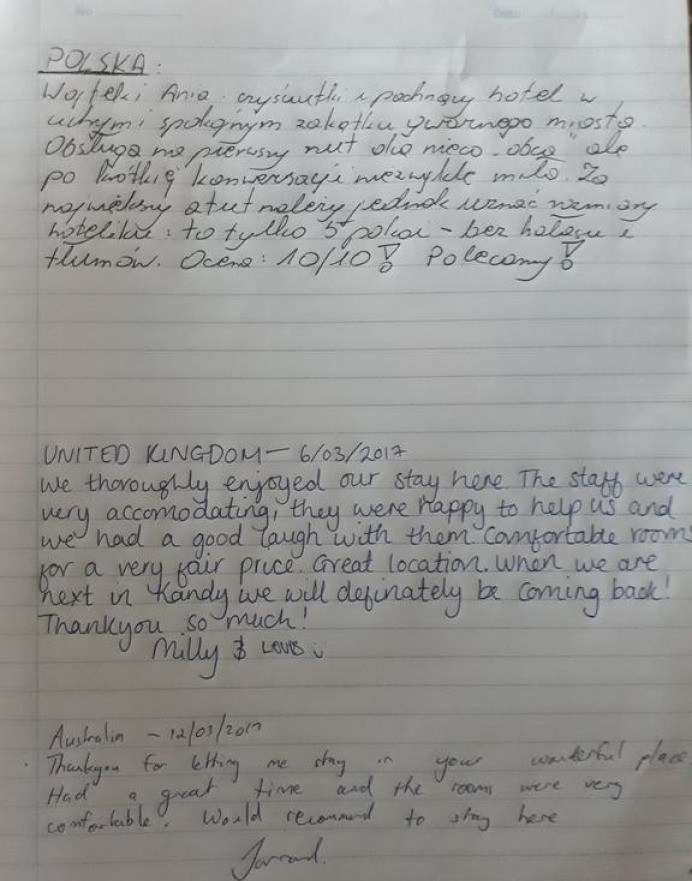 POLSKA:
Wojtek i Ania: czyściutki i pachnący hotel w
uchym i spokojnym zakątku gwarnego miasta.
Obsługa na pierwszy rzut oka nieco "obca" ale
po krótkiej konwersacji niezwykle miła. Za
największy atut należy jednak uznać rozmiary
hoteliku: to tylko 5 pokoi - bez hałasu i
tłumów. Ocena: 10/10! Polecamy!
UNITED KINGDOM - 6/03/2017
We thoroughly enjoyed our stay here. The staff were
very accomodating, they were happy to help us and
we had a good laugh with them. Comfortable rooms
for a very fair price. Great location. When we are
next in Kandy we will definately be coming back!
Thankyou so much!
Milly & Louis
Australia - 12/03/2017
Thankyou for letting me stay in your wonderful place
Had a great time and the rooms were very
comfortable. Would recommend to stay here
Jarrad.